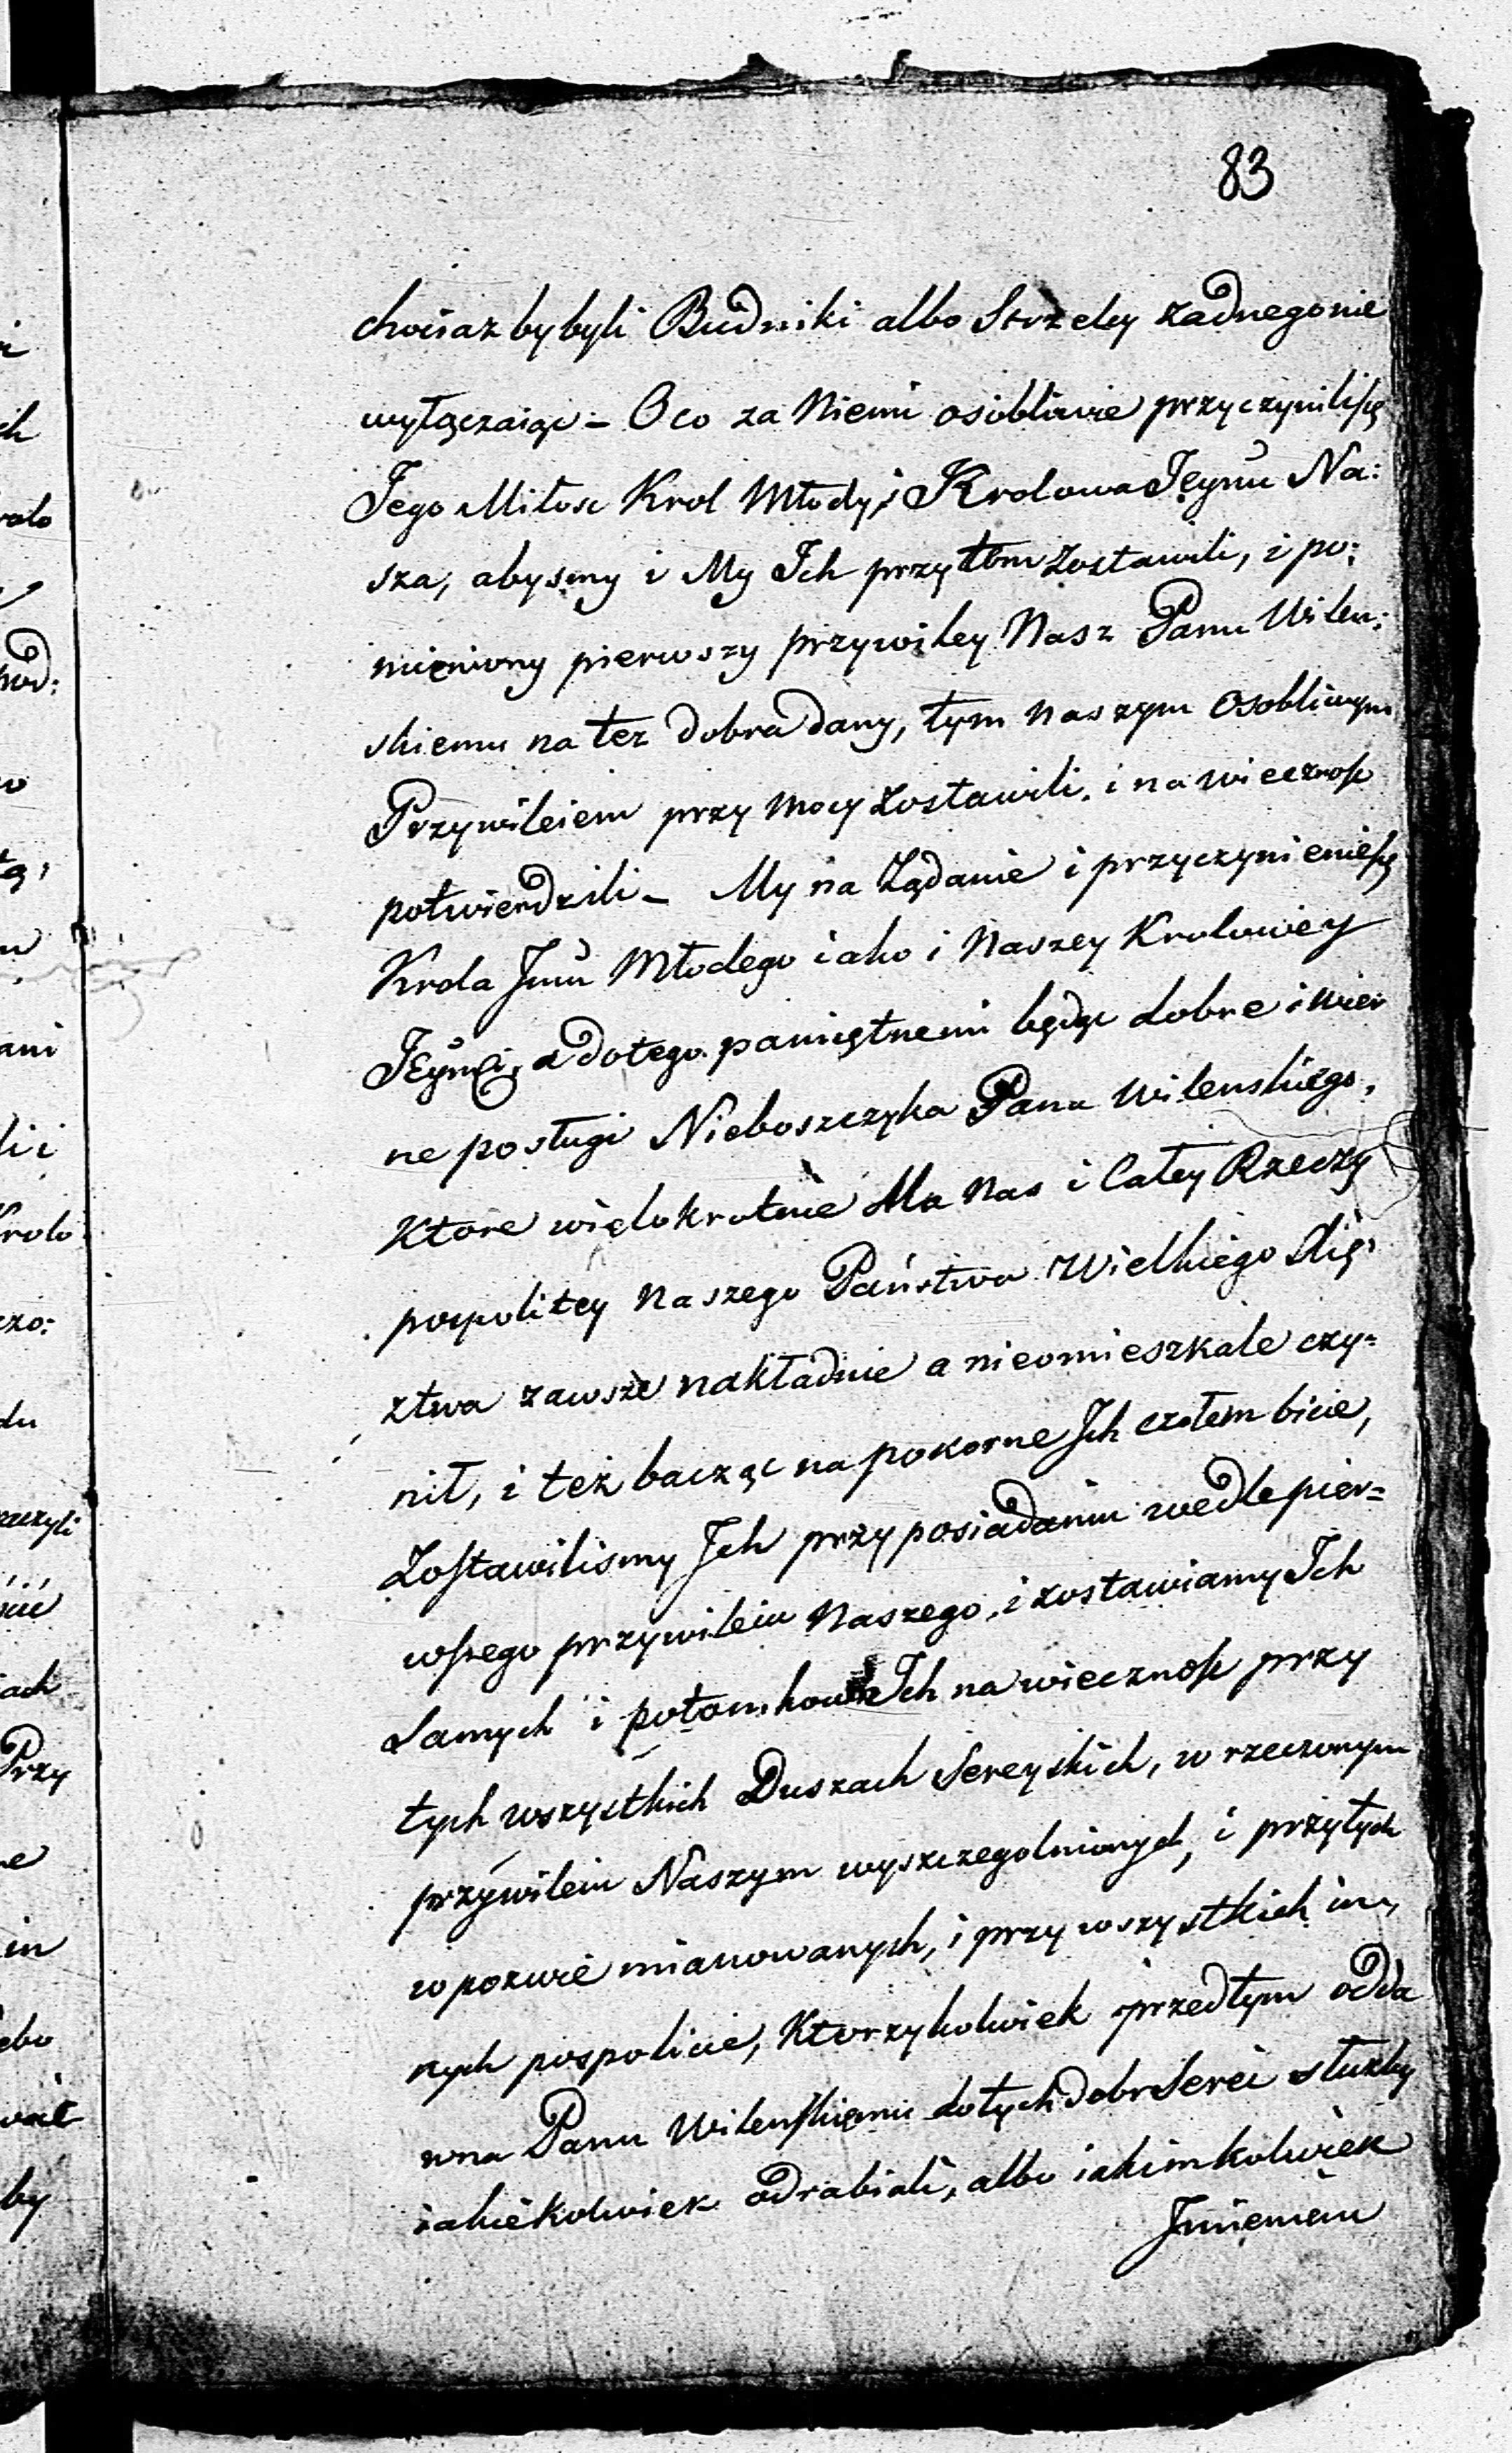 83
chociaz by byli Budniki albo Strzelcy żadnego nie
wyłączaiąc – O co za Niemi osobliwie przyczynili się
Jego Miłosc Krol Młody, i Krolowa Jeymć Na:
sza, abysmy i My Ich przy tem zostawili, i po:
mieniony pierwszy przywiley Nasz Panu Wilen:
skiemu na tez dobra dany, tym naszym osobliwym
Przywileiem przy mocy zostawili, i na wiecznosc
potwierdzili – My na żądanie i przyczynienie się
Krola Jmć Młodego iako i Naszey Krolowey
Jeymći, a do tego pamiętnemi będąc dobre i wier
ne posługi Nieboszczyka Pana Wilenskiego,
Ktore wielokrotnie dla Nas i Całey Rzeczy
pospolitey Naszego Państwa Wielkiego Xię:
ztwa zawsze nakładnie a nieomieszkale czy=
nił, i też bacząc na pokorne Ich czołem bicie,
Zostawilismy Ich przy posiadaniu wedle pier=
wszego przywileiu Naszego, i zostawiamy Ich
Samych i potomkow Ich na wiecznosc przy
tych wszystkich Duszach Sereyskich, w rzeczonym
przywileiu Naszym wyszczegolnionych, i przy tych
w pozwie mianowanych, i przy wszystkich in:
nych pospolicie, Ktorzykolwiek przedtym odda
wna Panu Wilenskiemu do tych dobr Serei służby
iakiekolwiek odrabiali, albo iakimkolwiek
Jmieniem